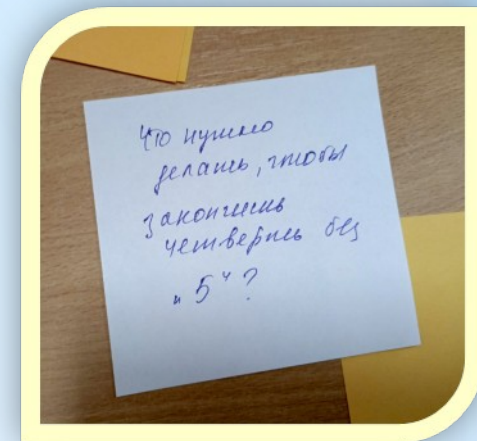 Что нужно
делать, чтобы
закончить
четверть без
"5"?